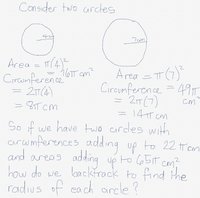 Consider two circles
4cm
7cm
Area = π(4)²
= 16π cm²
Circumference
= 2π(4)
= 8π cm
Area = π(7)²
= 49π cm²
Circumference
= 2π(7)
= 14π cm
So if we have two circles with
circumferences adding up to 22π cm
and areas adding up to 65π cm²
how do we backtrack to find the
radius of each circle?